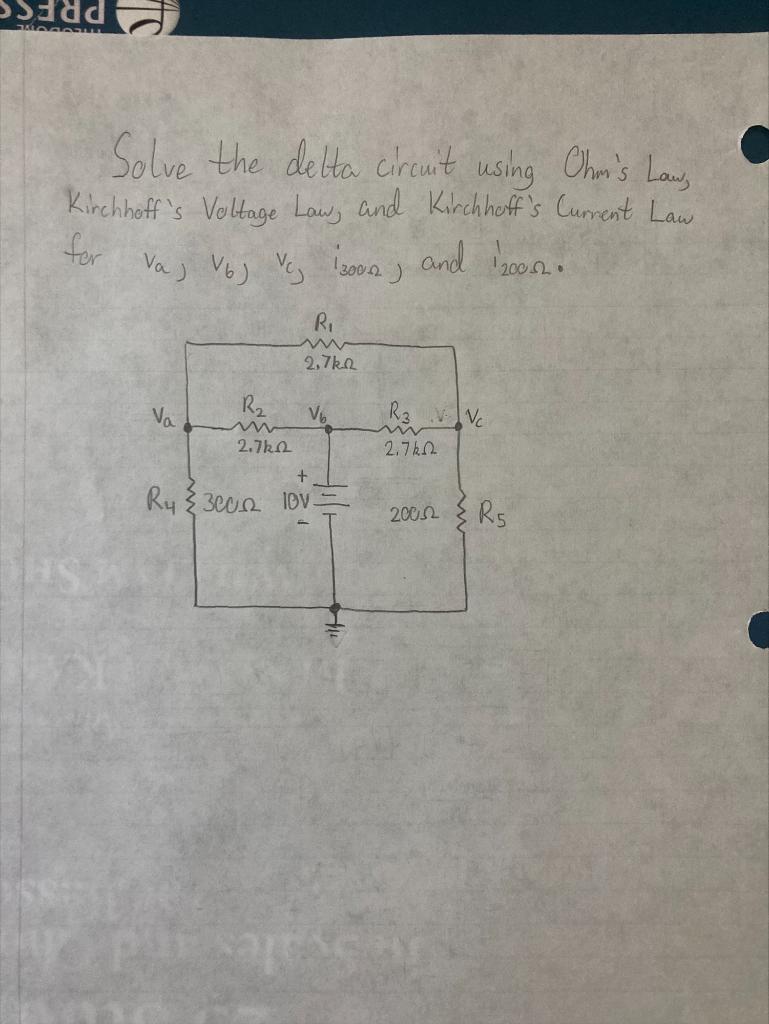 PRESS
Solve the delta circuit using Ohm's Law,
Kirchhoff's Voltage Law, and Kirchhoff's Current Law
for Va, Vb, Vc, i300Ω, and i200Ω.
R1
2.7kΩ
Va R2 Vb R3 Vc
2.7kΩ 2.7kΩ
+
R4 300Ω 10V 200Ω R5
-